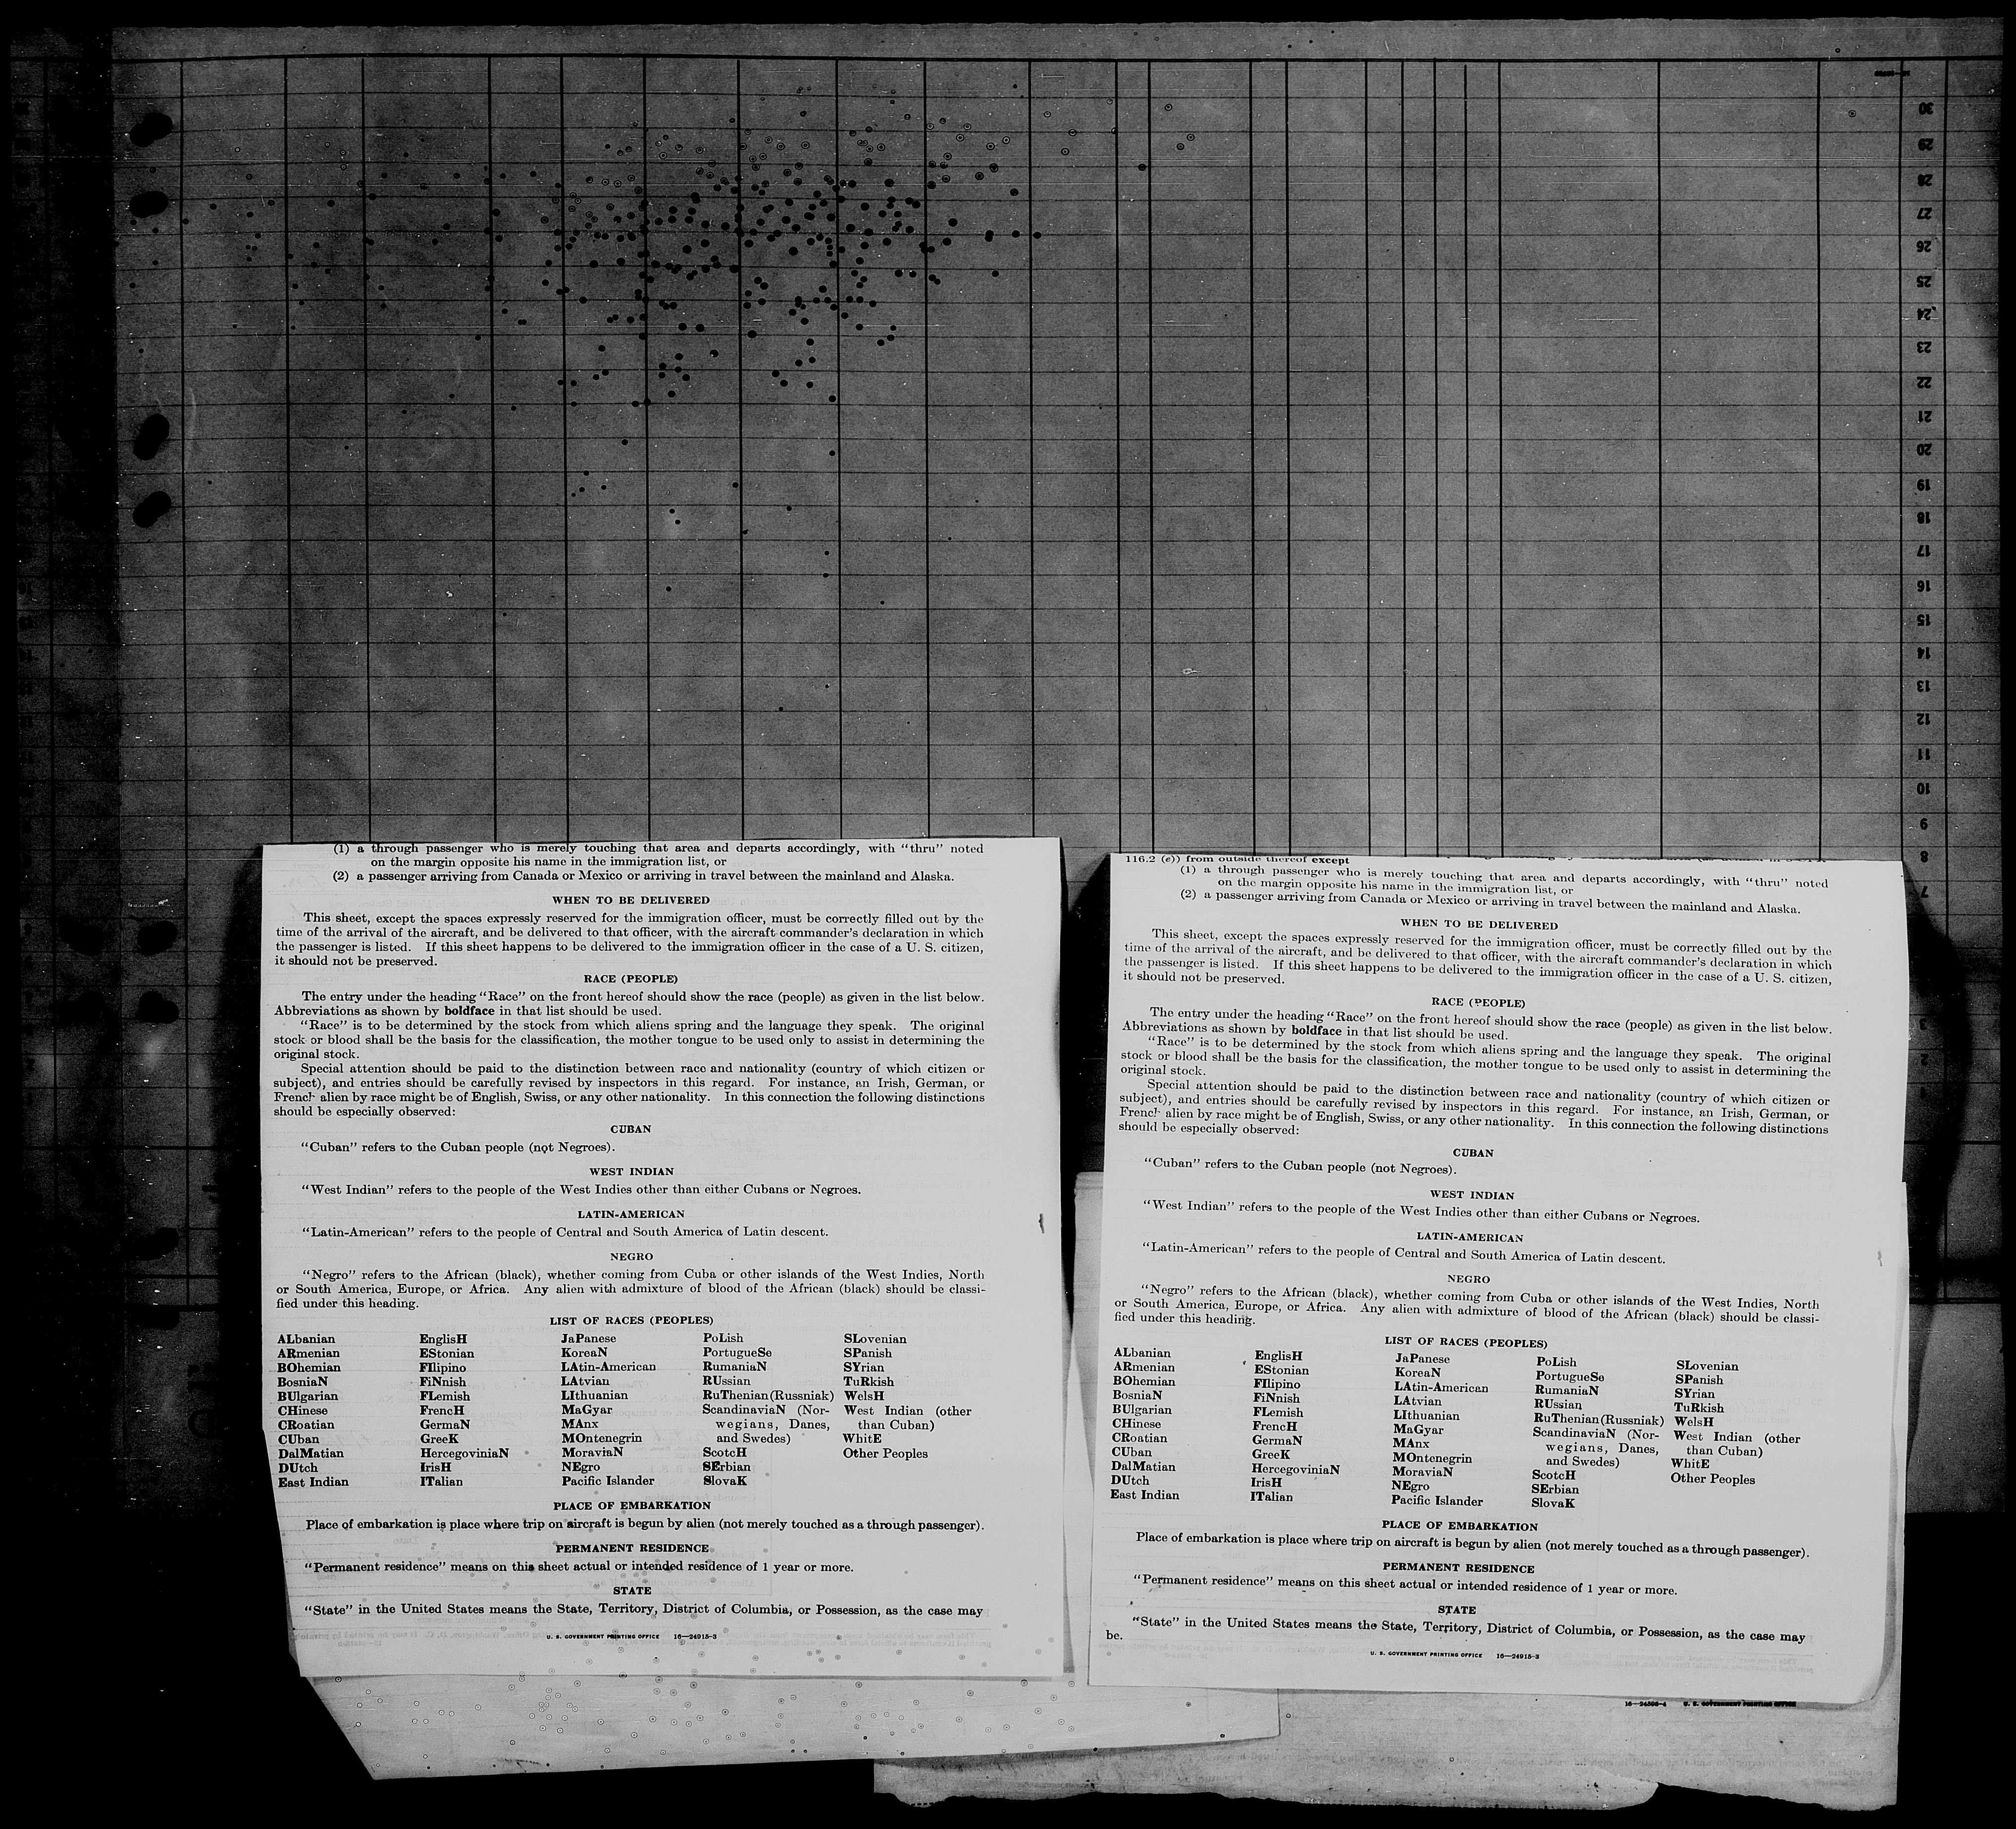 30
29
28
27
26
25
24
23
22
21
20
19
18
17
16
15
14
13
12
11
10
9
8
7
3
2
(1) a through passenger who is merely touching that area and departs accordingly, with “thru” noted
on the margin opposite his name in the immigration list, or
(2) a passenger arriving from Canada or Mexico or arriving in travel between the mainland and Alaska.
WHEN TO BE DELIVERED
This sheet, except the spaces expressly reserved for the immigration officer, must be correctly filled out by the
time of the arrival of the aircraft, and be delivered to that officer, with the aircraft commander’s declaration in which
the passenger is listed. If this sheet happens to be delivered to the immigration officer in the case of a U. S. citizen,
it should not be preserved.
RACE (PEOPLE)
The entry under the heading “Race” on the front hereof should show the race (people) as given in the list below.
Abbreviations as shown by boldface in that list should be used.
“Race” is to be determined by the stock from which aliens spring and the language they speak. The original
stock or blood shall be the basis for the classification, the mother tongue to be used only to assist in determining the
original stock.
Special attention should be paid to the distinction between race and nationality (country of which citizen or
subject), and entries should be carefully revised by inspectors in this regard. For instance, an Irish, German, or
French alien by race might be of English, Swiss, or any other nationality. In this connection the following distinctions
should be especially observed:
CUBAN
“Cuban” refers to the Cuban people (not Negroes).
WEST INDIAN
“West Indian” refers to the people of the West Indies other than either Cubans or Negroes.
LATIN-AMERICAN
“Latin-American” refers to the people of Central and South America of Latin descent.
NEGRO
“Negro” refers to the African (black), whether coming from Cuba or other islands of the West Indies, North
or South America, Europe, or Africa. Any alien with admixture of blood of the African (black) should be classi-
fied under this heading.
LIST OF RACES (PEOPLES)
ALbanian EnglisH JaPanese PoLish SLovenian
ARmenian EStonian KoreaN PortugueSe SPanish
BOhemian FIlipino LAtin-American RumaniaN SYrian
BosniaN FiNnish LAtvian RUssian TuRkish
BUlgarian FLemish LIthuanian RuThenian (Russniak) WelsH
CHinese FrencH MaGyar ScandinaviaN (Nor- West Indian (other
CRoatian GermaN MAnx wegians, Danes, than Cuban)
CUban GreeK MOntenegrin and Swedes) WhitE
DalMatian HercegoviniaN MoraviaN ScotcH Other Peoples
DUtch IrisH NEgro SErbian
East Indian ITalian Pacific Islander SlovaK
PLACE OF EMBARKATION
Place of embarkation is place where trip on aircraft is begun by alien (not merely touched as a through passenger).
PERMANENT RESIDENCE
“Permanent residence” means on this sheet actual or intended residence of 1 year or more.
STATE
“State” in the United States means the State, Territory, District of Columbia, or Possession, as the case may
U. S. GOVERNMENT PRINTING OFFICE 16—24915-3
116.2 (e)) from outside thereof except
(1) a through passenger who is merely touching that area and departs accordingly, with “thru” noted
on the margin opposite his name in the immigration list, or
(2) a passenger arriving from Canada or Mexico or arriving in travel between the mainland and Alaska.
WHEN TO BE DELIVERED
This sheet, except the spaces expressly reserved for the immigration officer, must be correctly filled out by the
time of the arrival of the aircraft, and be delivered to that officer, with the aircraft commander’s declaration in which
the passenger is listed. If this sheet happens to be delivered to the immigration officer in the case of a U. S. citizen,
it should not be preserved.
RACE (PEOPLE)
The entry under the heading “Race” on the front hereof should show the race (people) as given in the list below.
Abbreviations as shown by boldface in that list should be used.
“Race” is to be determined by the stock from which aliens spring and the language they speak. The original
stock or blood shall be the basis for the classification, the mother tongue to be used only to assist in determining the
original stock.
Special attention should be paid to the distinction between race and nationality (country of which citizen or
subject), and entries should be carefully revised by inspectors in this regard. For instance, an Irish, German, or
French alien by race might be of English, Swiss, or any other nationality. In this connection the following distinctions
should be especially observed:
CUBAN
“Cuban” refers to the Cuban people (not Negroes).
WEST INDIAN
“West Indian” refers to the people of the West Indies other than either Cubans or Negroes.
LATIN-AMERICAN
“Latin-American” refers to the people of Central and South America of Latin descent.
NEGRO
“Negro” refers to the African (black), whether coming from Cuba or other islands of the West Indies, North
or South America, Europe, or Africa. Any alien with admixture of blood of the African (black) should be classi-
fied under this heading.
LIST OF RACES (PEOPLES)
ALbanian EnglisH JaPanese PoLish SLovenian
ARmenian EStonian KoreaN PortugueSe SPanish
BOhemian FIlipino LAtin-American RumaniaN SYrian
BosniaN FiNnish LAtvian RUssian TuRkish
BUlgarian FLemish LIthuanian RuThenian (Russniak) WelsH
CHinese FrencH MaGyar ScandinaviaN (Nor- West Indian (other
CRoatian GermaN MAnx wegians, Danes, than Cuban)
CUban GreeK MOntenegrin and Swedes) WhitE
DalMatian HercegoviniaN MoraviaN ScotcH Other Peoples
DUtch IrisH NEgro SErbian
East Indian ITalian Pacific Islander SlovaK
PLACE OF EMBARKATION
Place of embarkation is place where trip on aircraft is begun by alien (not merely touched as a through passenger).
PERMANENT RESIDENCE
“Permanent residence” means on this sheet actual or intended residence of 1 year or more.
STATE
“State” in the United States means the State, Territory, District of Columbia, or Possession, as the case may
be.
U. S. GOVERNMENT PRINTING OFFICE 16—24915-3
U. S. GOVERNMENT PRINTING OFFICE